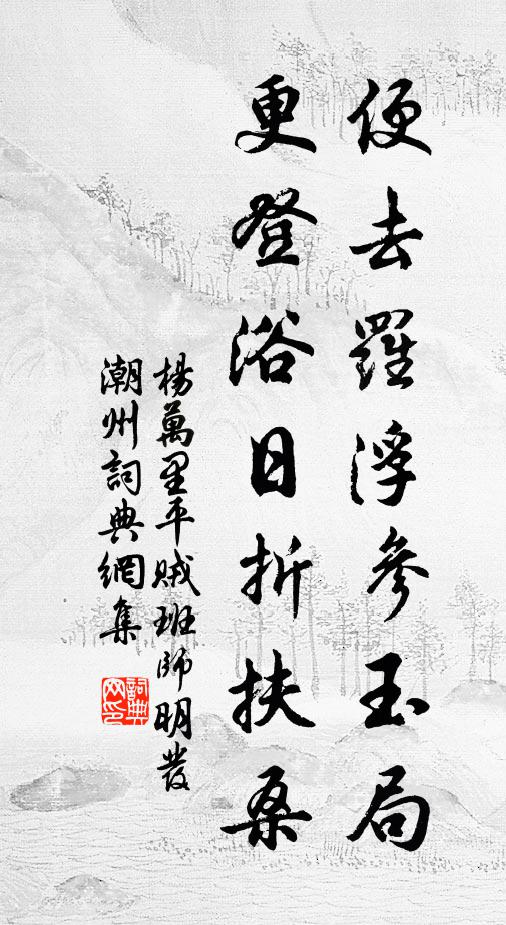 便去羅浮參玉局
更登浴日折扶桑
楊萬里平賊班師明發
潮州詞典網集
詞典網印